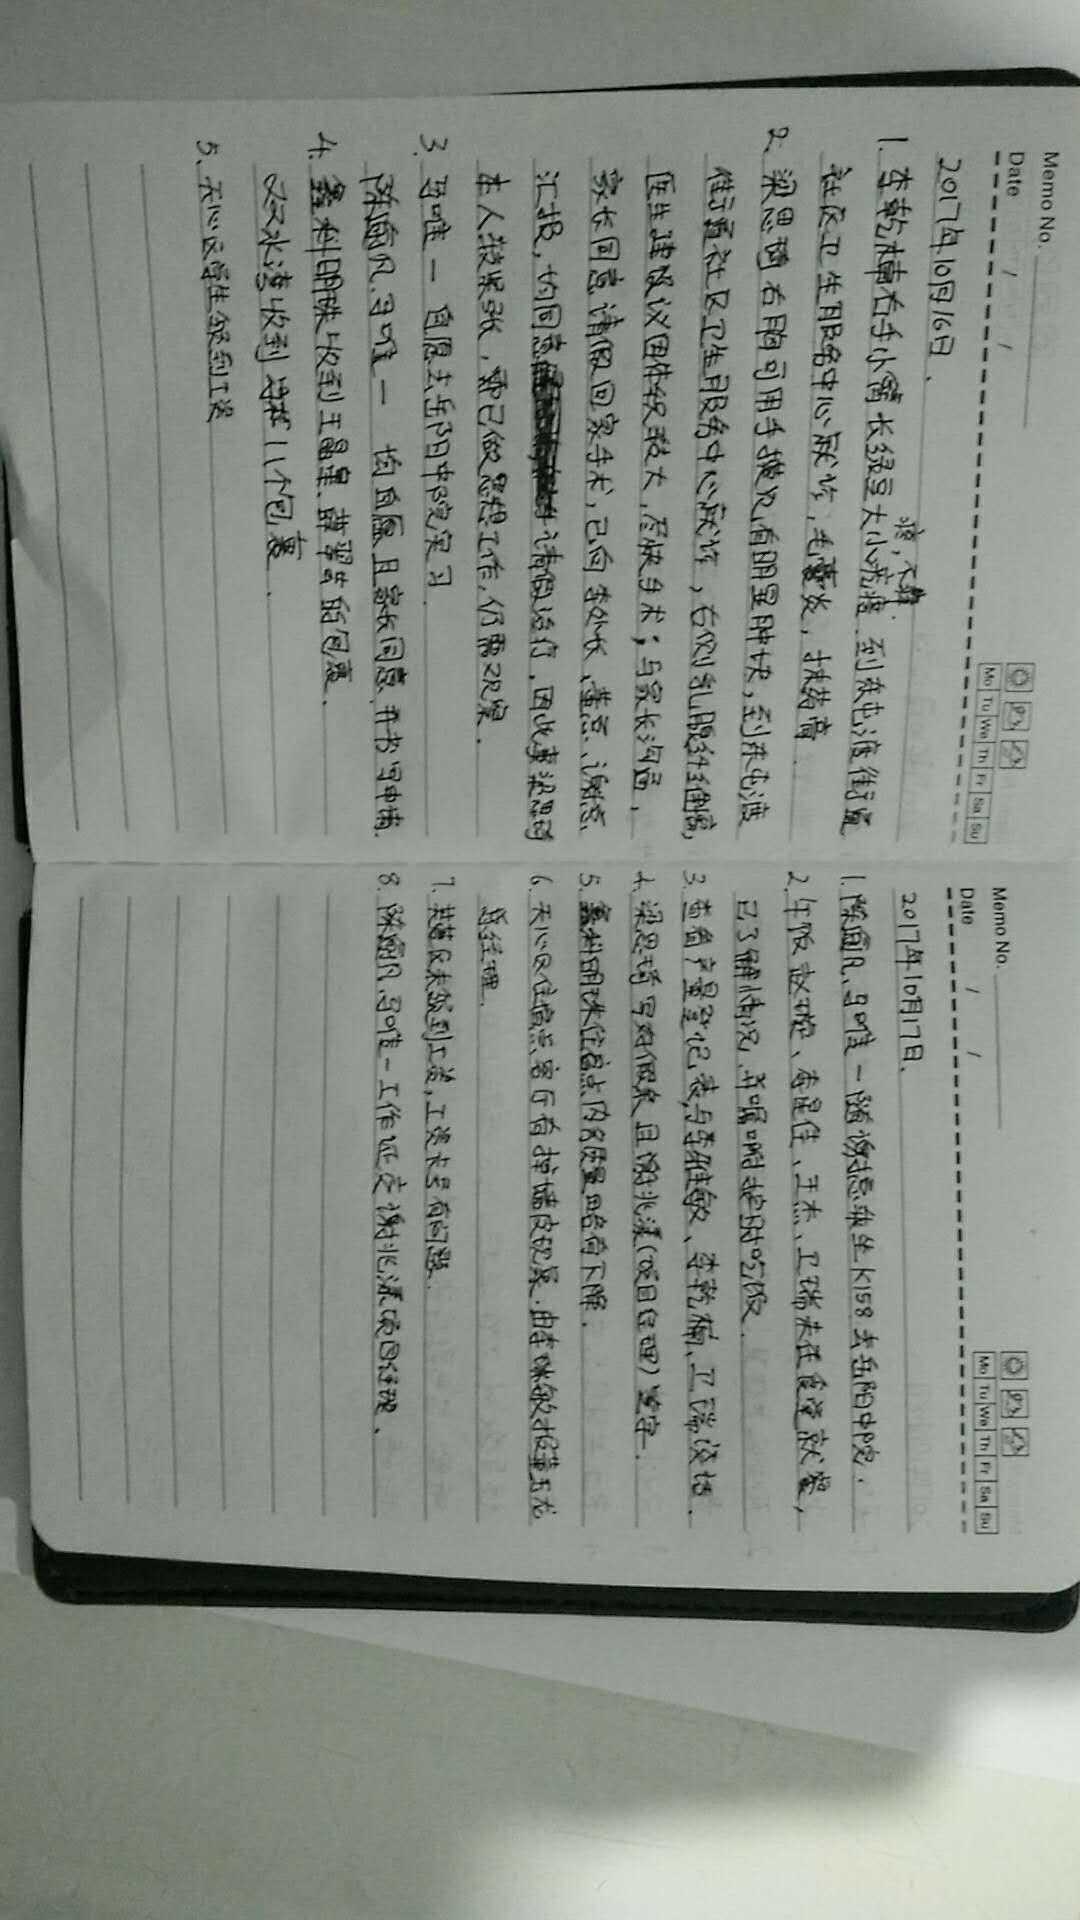 Memo No.
Date / /
Mo Tu We Th Fr Sa Su
2017年10月16日.
疼,不痒.
1. 李乾楠右手小臂长绿豆大小疙瘩.到东屯渡街道
社区卫生服务中心就诊,毛囊炎,抹药膏
2. 梁思琦右胸可用手摸及,有明显肿块,到东屯渡
街道社区卫生服务中心就诊,右侧乳腺纤维瘤,
医生建议因体积较大,尽快手术;与家长沟通,
家长同意请假回家手术,已向李处长、董总、谢总
汇报,均同意请假治疗,因此事梁思琦
本人较紧张,都已做思想工作,仍需观察.
3. 马唯一 自愿去岳阳中院实习.
陈俞凡、马唯一 均自愿且家长同意,并书写申请.
4. 鑫科明珠收到王晶星、苗翠苦的包裹.
双水湾收到 11个包裹.
5. 天心区学生领到工资
Memo No.
Date / /
Mo Tu We Th Fr Sa Su
2017年10月17日.
1. 陈俞凡、马唯一随谢总乘坐K158去岳阳中院.
2. 午饭赵璇、李星佳、王杰、卫瑞未在食堂就餐,
已了解情况,并嘱咐按时吃饭.
3. 查看产量登记表,与李雅敏、李乾楠、卫瑞谈话.
4. 梁思琦写好假条且谢兆漾(项目经理)签字.
5. 鑫科明珠住宿点内务质量略有下降.
6. 天心区住宿点客厅有掉墙皮现象.由李咪敏报董玉龙
总经理.
7. 未领到工资,工资卡号有问题.
8. 陈俞凡、马唯一工作证交谢兆漾项目经理.